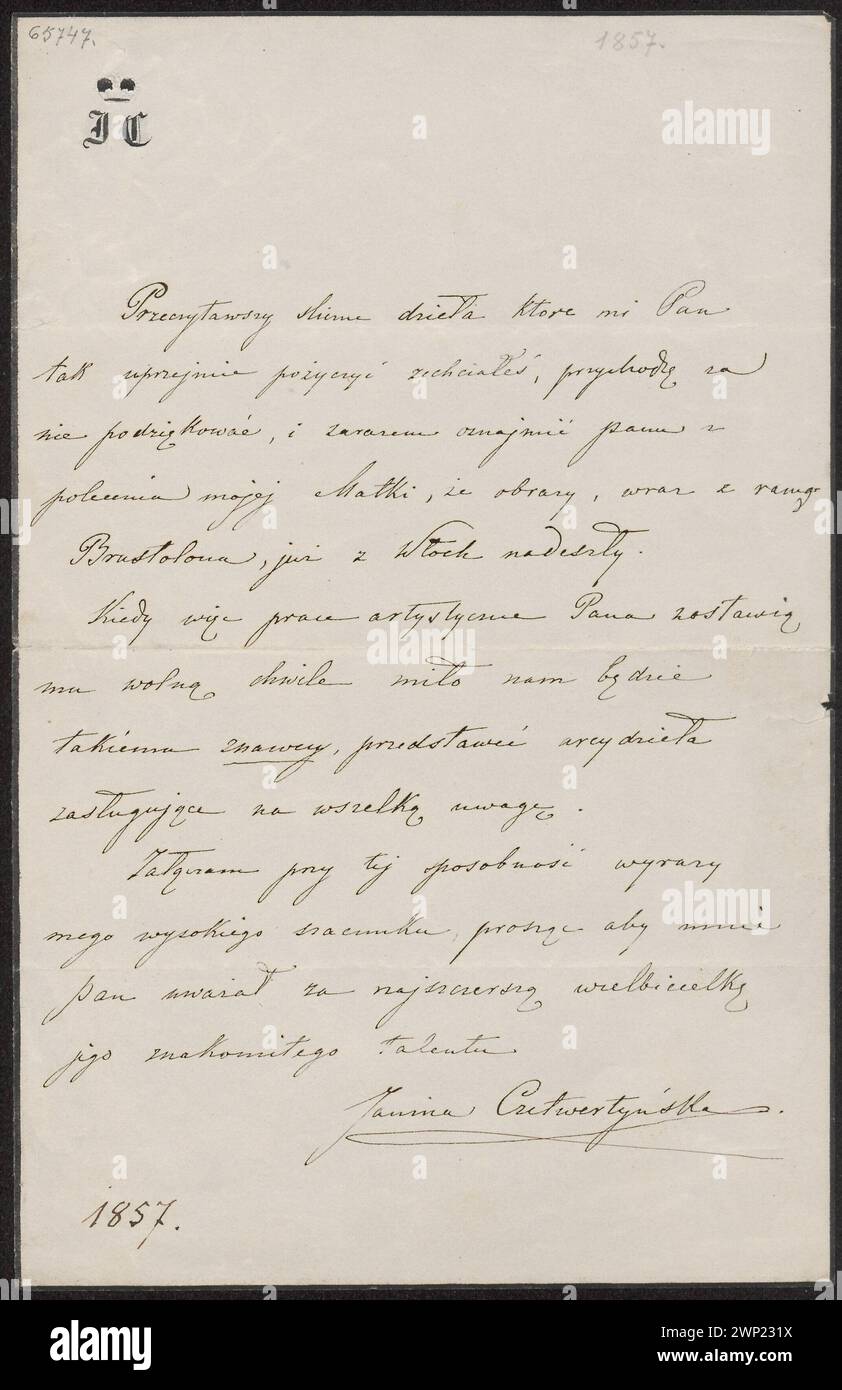 65747.
1857.
J C
Przeczytawszy śliczne dzieła ktore mi Pan
tak uprzejmie pożyczyć zechciałeś, przychodzę za
nie podziękować, i zarazem oznajmić panu z
polecenia mojej Matki, że obrazy, wraz z ramą
Brustolona, już z Włoch nadeszły.
Kiedy więc prace artystyczne Pana zostawią
mu wolną chwile miło nam będzie
takiému znawcy, przedstawić arcydzieła
zasługujące na wszelką uwagę.
Załączam przy tej sposobność wyrazy
mego wysokiego szacunku, proszę aby mnie
Pan uważał za najszczerszą wielbicielkę
jego znakomitego talentu
Janina Czetwertyńska.
1857.
alamy
alamy
alamy
alamy
Image ID: 2WP231X
www.alamy.com